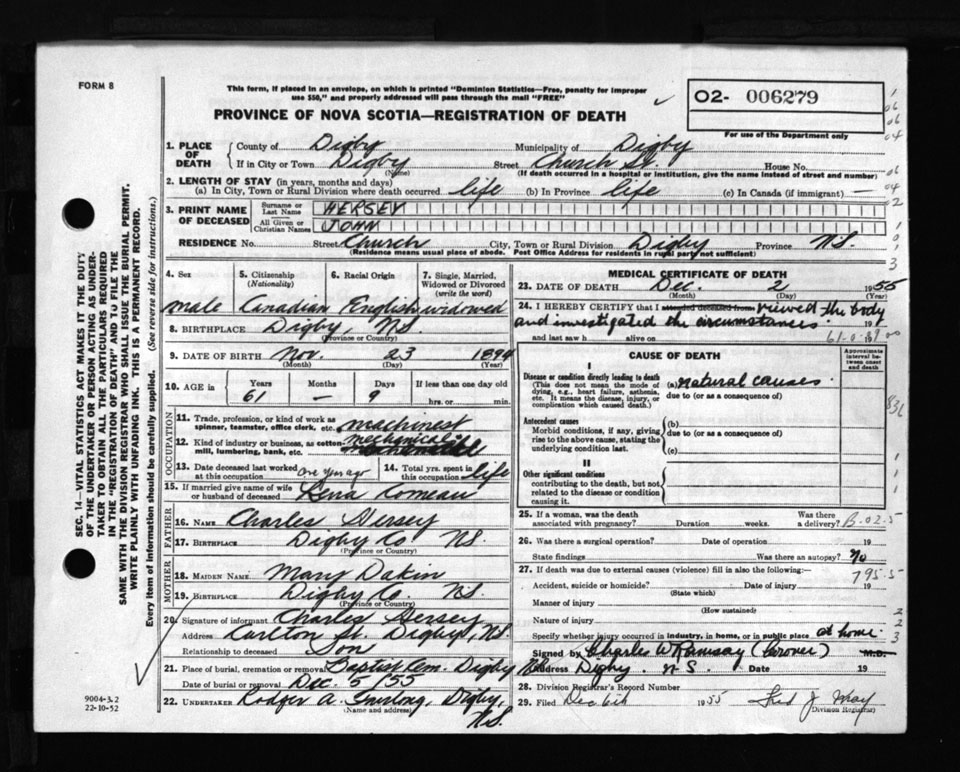 FORM 8
This form, if placed in an envelope, on which is printed "Dominion Statistics—Free, penalty for improper
use $50," and properly addressed will pass through the mail "FREE"
PROVINCE OF NOVA SCOTIA—REGISTRATION OF DEATH
O2- 006279
For use of the Department only
1. PLACE OF DEATH County of Digby Municipality of Digby
If in City or Town Digby Street Church St. House No.
(Name) (If death occurred in a hospital or institution, give the name instead of street and number)
2. LENGTH OF STAY (in years, months and days)
(a) In City, Town or Rural Division where death occurred life (b) In Province life (c) In Canada (if immigrant) —
3. PRINT NAME OF DECEASED Surname or Last Name HERSEY
All Given or Christian Names JOHN
RESIDENCE No. Street Church City, Town or Rural Division Digby Province N.S.
(Residence means usual place of abode. Post Office Address for residents in rural parts not sufficient)
4. Sex male
5. Citizenship (Nationality) Canadian
6. Racial Origin English
7. Single, Married, Widowed or Divorced (write the word) widowed
8. BIRTHPLACE Digby, N.S.
(Province or Country)
9. DATE OF BIRTH Nov. 23 1894
(Month) (Day) (Year)
10. AGE in Years 61 Months — Days 9 If less than one day old hrs. or min.
OCCUPATION
11. Trade, profession, or kind of work as spinner, teamster, office clerk, etc. machinest
12. Kind of industry or business, as cotton mill, lumbering, bank, etc. mechanical
13. Date deceased last worked at this occupation one yr ago
14. Total yrs. spent in this occupation life
15. If married give name of wife or husband of deceased Lena Comeau
FATHER
16. NAME Charles Hersey
17. BIRTHPLACE Digby Co N.S.
(Province or Country)
MOTHER
18. MAIDEN NAME Mary Dakin
19. BIRTHPLACE Digby Co. N.S.
(Province or Country)
20. Signature of informant Charles Hersey
Address Carlton St. Digby, N.S.
Relationship to deceased Son
21. Place of burial, cremation or removal Baptist Cem. Digby N.S.
Date of burial or removal Dec. 5/55
22. UNDERTAKER A. Digby, N.S.
(Name and address)
MEDICAL CERTIFICATE OF DEATH
23. DATE OF DEATH Dec. 2 1955
(Month) (Day) (Year)
24. I HEREBY CERTIFY that I attended deceased from viewed the body
and investigated the circumstances. 19
and last saw h alive on 19
CAUSE OF DEATH
Approximate interval between onset and death
I
Disease or condition directly leading to death
(This does not mean the mode of dying, e.g., heart failure, asthenia, etc. It means the disease, injury, or complication which caused death.)
(a) natural causes.
due to (or as a consequence of)
Antecedent causes
Morbid conditions, if any, giving rise to the above cause, stating the underlying condition last.
(b)
due to (or as a consequence of)
(c)
II
Other significant conditions
contributing to the death, but not related to the disease or condition causing it.
25. If a woman, was the death associated with pregnancy? Duration weeks. Was there a delivery?
26. Was there a surgical operation? Date of operation 19
State findings Was there an autopsy? No
27. If death was due to external causes (violence) fill in also the following:—
795.5
Accident, suicide or homicide? Date of injury 19
(State which)
Manner of injury
(How sustained)
Nature of injury
Specify whether injury occurred in industry, in home, or in public place at home.
Signed by Charles W Ramsay (Coroner) M.D.
Address Digby. N S. Date 19
28. Division Registrar's Record Number
29. Filed Dec 6th 1955 Fred J Wray
Division Registrar
SEC. 14—VITAL STATISTICS ACT MAKES IT THE DUTY
OF THE UNDERTAKER OR PERSON ACTING AS UNDER-
TAKER TO OBTAIN ALL THE PARTICULARS REQUIRED
IN THE "REGISTRATION OF DEATH" AND TO FILE THE
SAME WITH THE DIVISION REGISTRAR WHO SHALL ISSUE THE BURIAL PERMIT.
WRITE PLAINLY WITH UNFADING INK. THIS IS A PERMANENT RECORD.
Every item of information should be carefully supplied. (See reverse side for instructions.)
9004-3.2
22-10-52